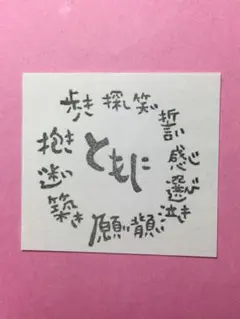 ともに
歩き
探し
笑い
誓い
感じ
選び
泣き
願い
築き
迷い
抱き